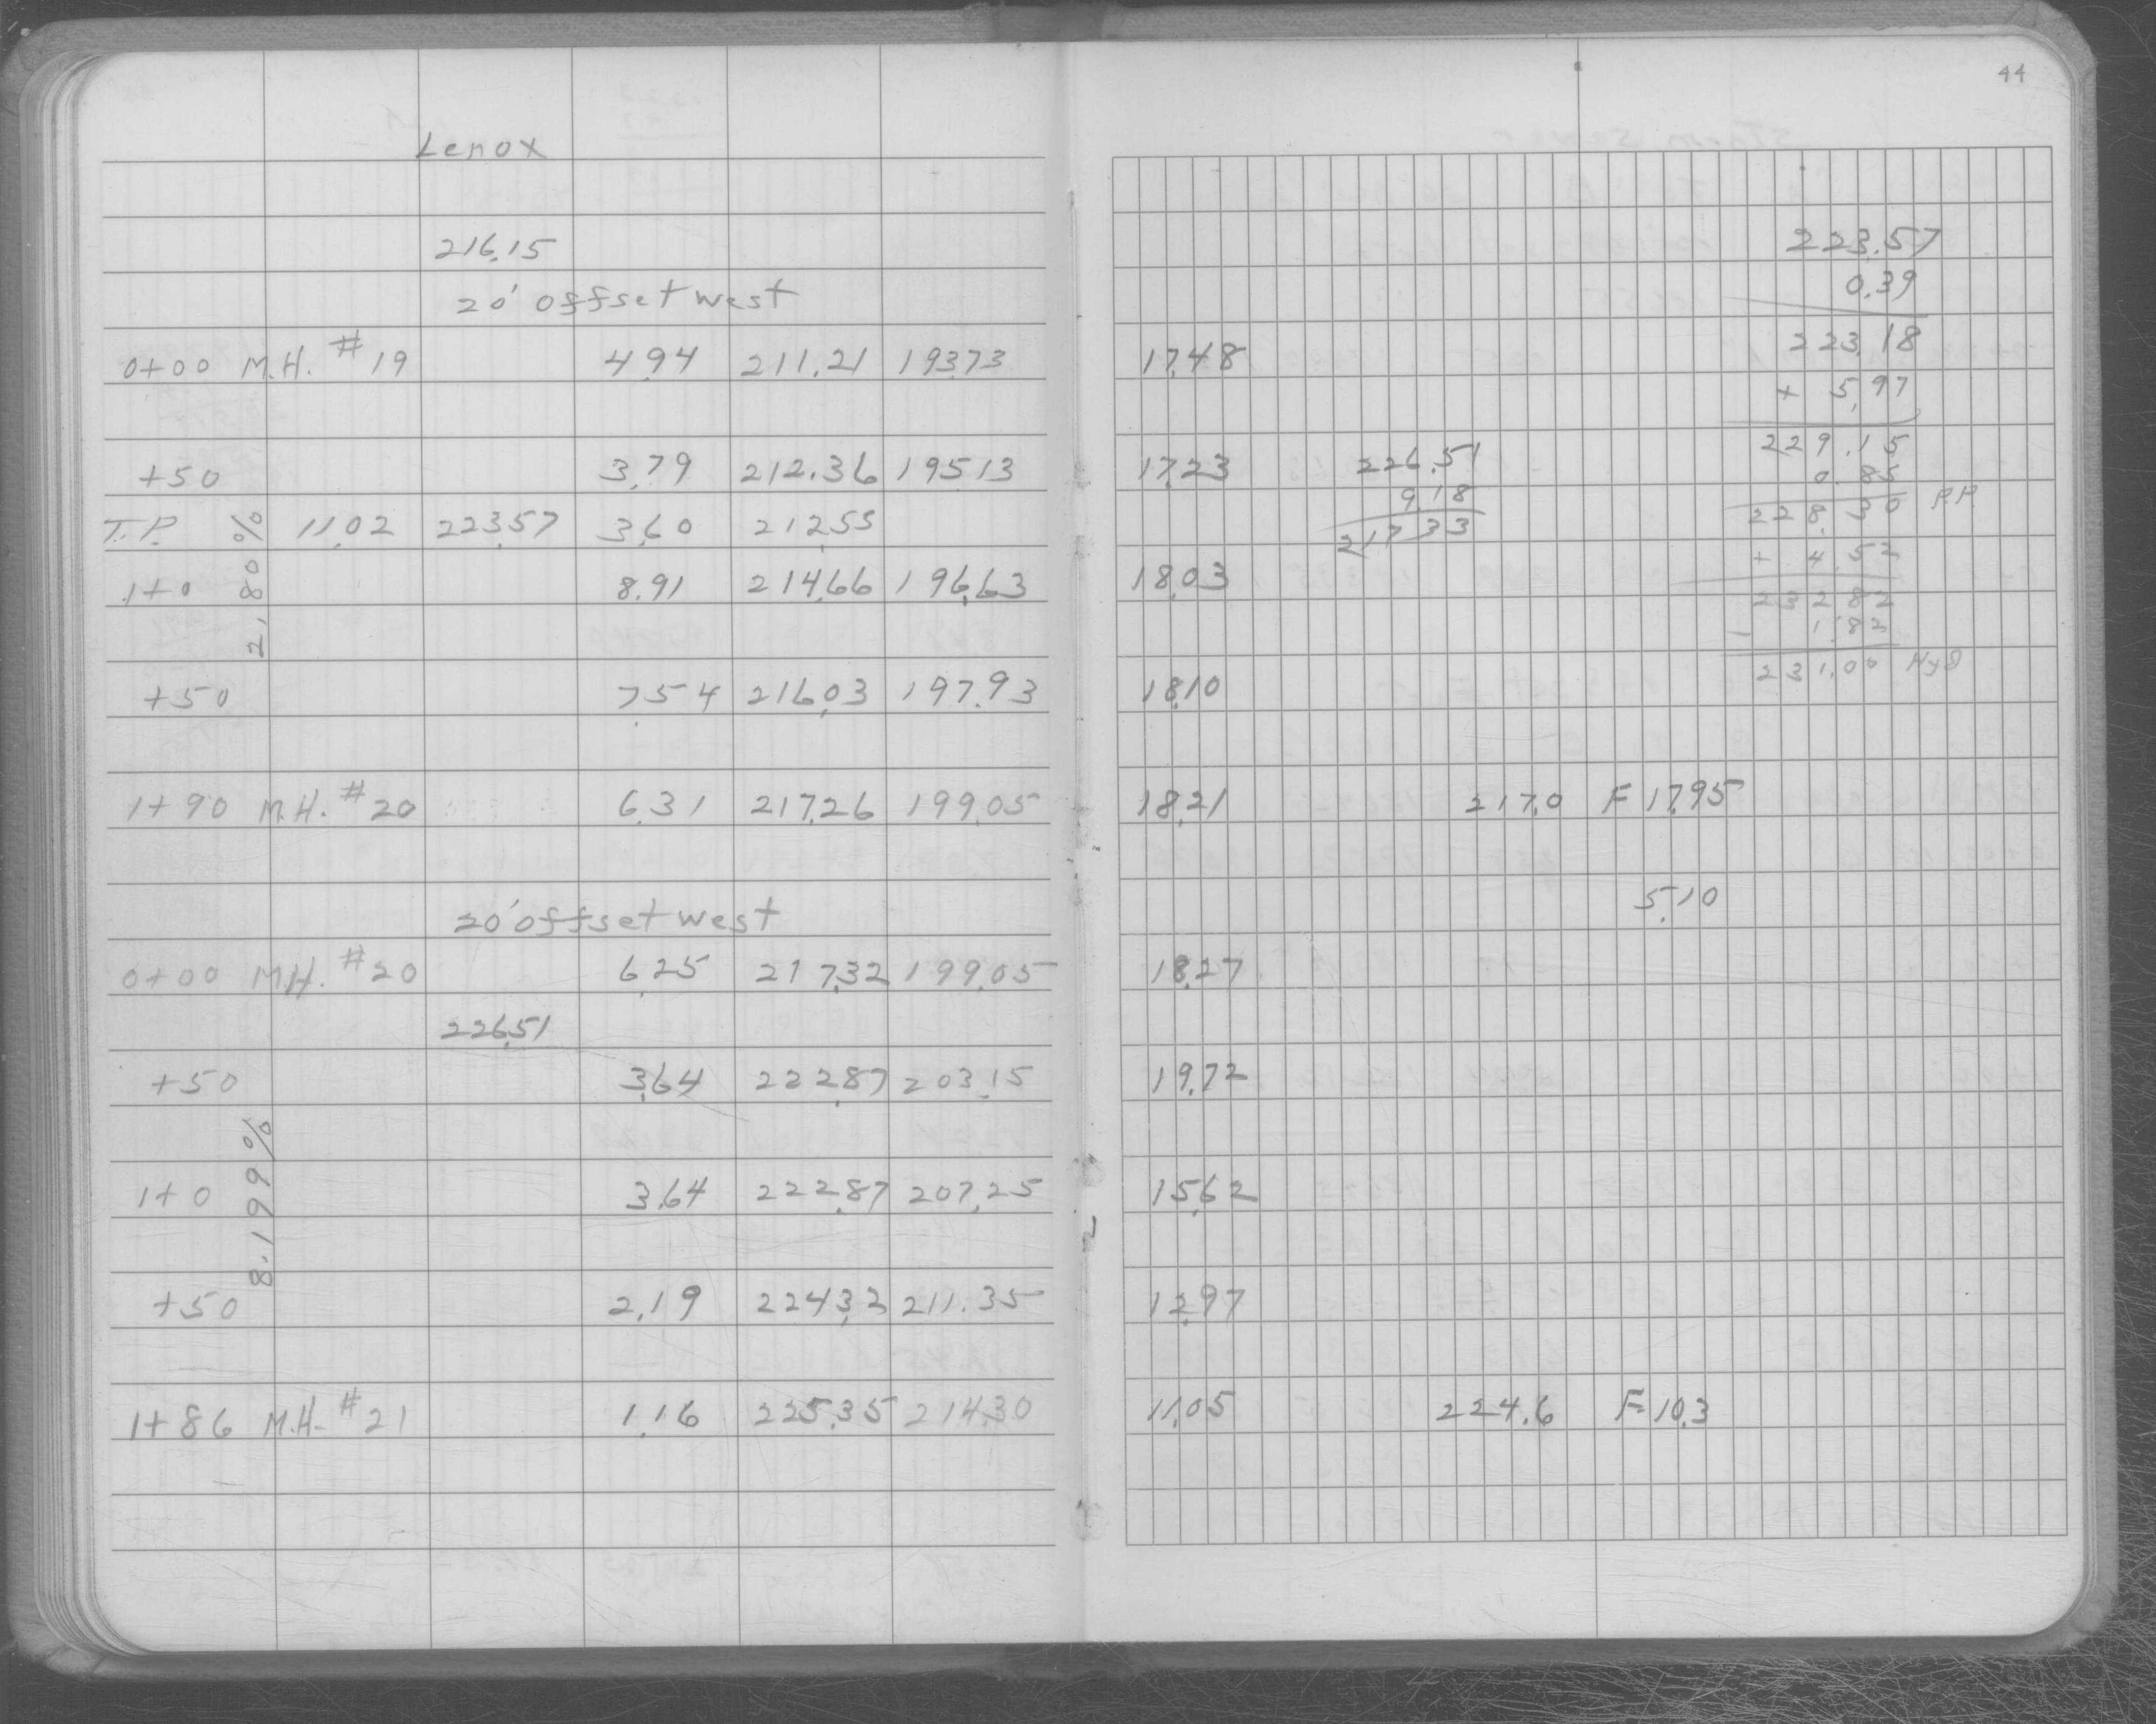 44
Lenox
216.15
20' offset west
0+00 M.H. #19 4.94 211.21 193.73 17.48
+50 3.79 212.36 195.13 17.23
T.P. 11.02 223.57 3.60 212.55
1+0 8.91 214.66 196.63 18.03
2.80%
+50 7.54 216.03 197.93 18.10
1+90 M.H. #20 6.31 217.26 199.05 18.21 217.0 F 17.95
5.10
20' offset west
0+00 M.H. #20 6.25 217.32 199.05 18.27
226.51
+50 3.64 222.87 203.15 19.72
8.199%
1+0 3.64 222.87 207.25 15.62
+50 2.19 224.32 211.35 12.97
1+86 M.H. #21 1.16 225.35 214.30 11.05 224.6 F 10.3
226.51
9.18
217.33
223.57
0.39
223.18
+ 5.97
229.15
0.85
228.30 P.P.
+ 4.52
232.82
- 1.82
231.00 Hyd